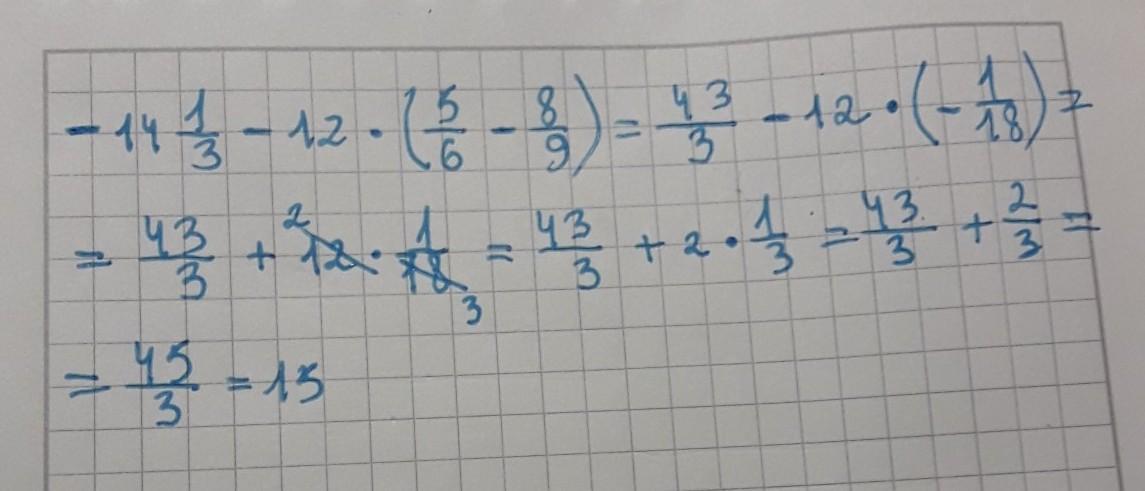 -14 1/3 - 12 · (5/6 - 8/9) = 43/3 - 12 · (-1/18) =
= 43/3 + 2 12 · 1/18 3 = 43/3 + 2 · 1/3 = 43/3 + 2/3 =
= 45/3 = 15